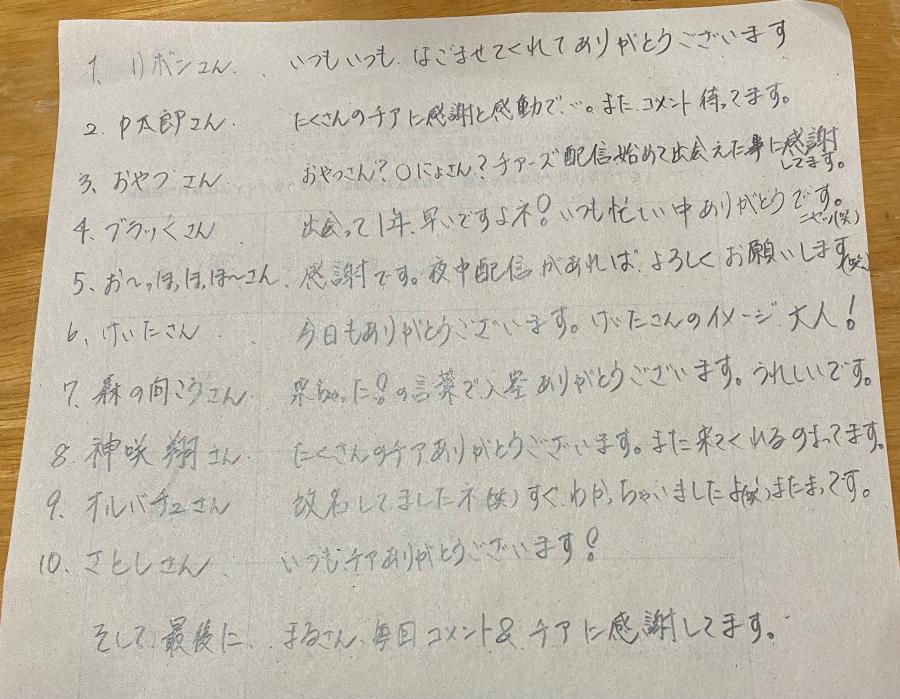 1. リボンさん. いつもいつも、なごませてくれてありがとうございます
2. P太郎さん. たくさんのチアに感謝と感動で…。また、コメント待ってます。
3、おやつ゛さん おやっさん?〇にょさん?チアーズ配信始めて出会えた事に感謝
してます。
4、ブラッくさん 出会って1年、早いですよネ!いつも忙しい中ありがとうです。
ニヤッ(笑)
5、お〜っほ、ほ、ほ〜さん、感謝です。夜中配信があれば、よろしくお願いします(笑)
6、けいたさん 今日もありがとうございます。けいたさんのイメージ 大人!
7、森の向こうさん 来ちゃった!の言葉で入室ありがとうございます。うれしいです。
8、神咲 翔さん たくさんのチアありがとうございます。また来てくれるのまってます。
9、オルバチュさん 改名してましたネ(笑)すぐ、わかっちゃいましたよ(笑)またまってです。
10、さとしさん. いつも、チアありがとうございます!
そして、最後に、 まるさん、毎回コメント& チアに感謝してます。